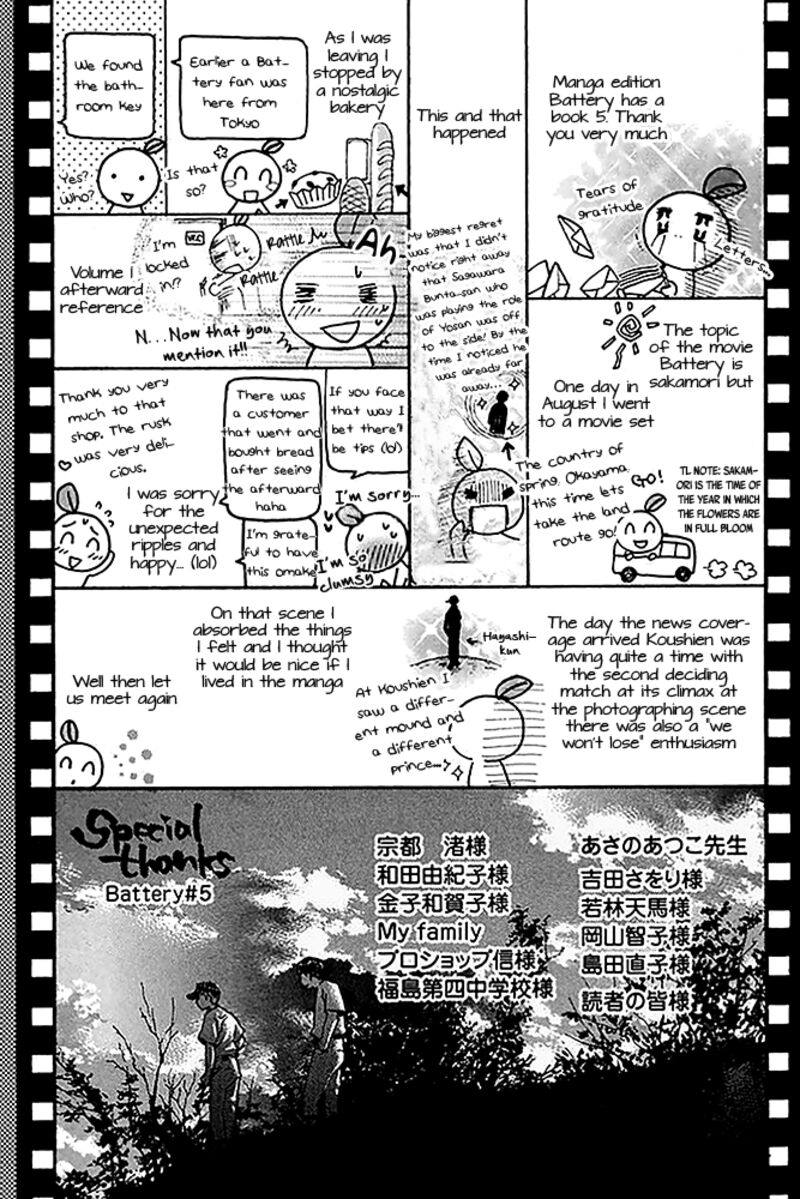 Manga edition
Battery has a
book 5. Thank
you very much
Tears of
gratitude
Letters...
The topic
of the movie
Battery is
sakamori but
One day in
August I went
to a movie set
TL NOTE: SAKAM-
ORI IS THE TIME OF
THE YEAR IN WHICH
THE FLOWERS ARE
IN FULL BLOOM
GO!
The country of
spring, Okayama,
this time lets
take the land
route go!
This and that
happened
My biggest regret
was that I didn't
notice right away
that Sagawara
Bunta-san who
was playing the role
of Yosan was off
to the side! By the
time I noticed he
was already far
away...
As I was
leaving I
stopped by
a nostalgic
bakery
Earlier a Bat-
tery fan was
here from
Tokyo
Is that
so?
We found
the bath-
room key
Yes?
Who?
Ah
I'm
locked
in!?
WC
Rattle
Rattle
N...Now that you
mention it!!
Volume 1
afterward
reference
If you face
that way I
bet there'll
be tips (lol)
There was
a customer
that went and
bought bread
after seeing
the afterward
haha
I'm sorry...
I'm grate-
ful to have
this omake
I'm so
clumsy
Thank you very
much to that
shop. The rusk
was very deli-
cious.
I was sorry
for the
unexpected
ripples and
happy... (lol)
The day the news cover-
age arrived Koushien was
having quite a time with
the second deciding
match at its climax at
the photographing scene
there was also a "we
won't lose" enthusiasm
Hayashi-
kun
At Koushien I
saw a differ-
ent mound and
a different
prince...
On that scene I
absorbed the things
I felt and I thought
it would be nice if I
lived in the manga
Well then let
us meet again
Special
thanks
Battery#5
あさのあつこ先生
吉田さをり様
若林天馬様
岡山智子様
島田直子様
読者の皆様
宗都 渚様
和田由紀子様
金子和賀子様
My family
プロショップ信様
福島第四中学校様